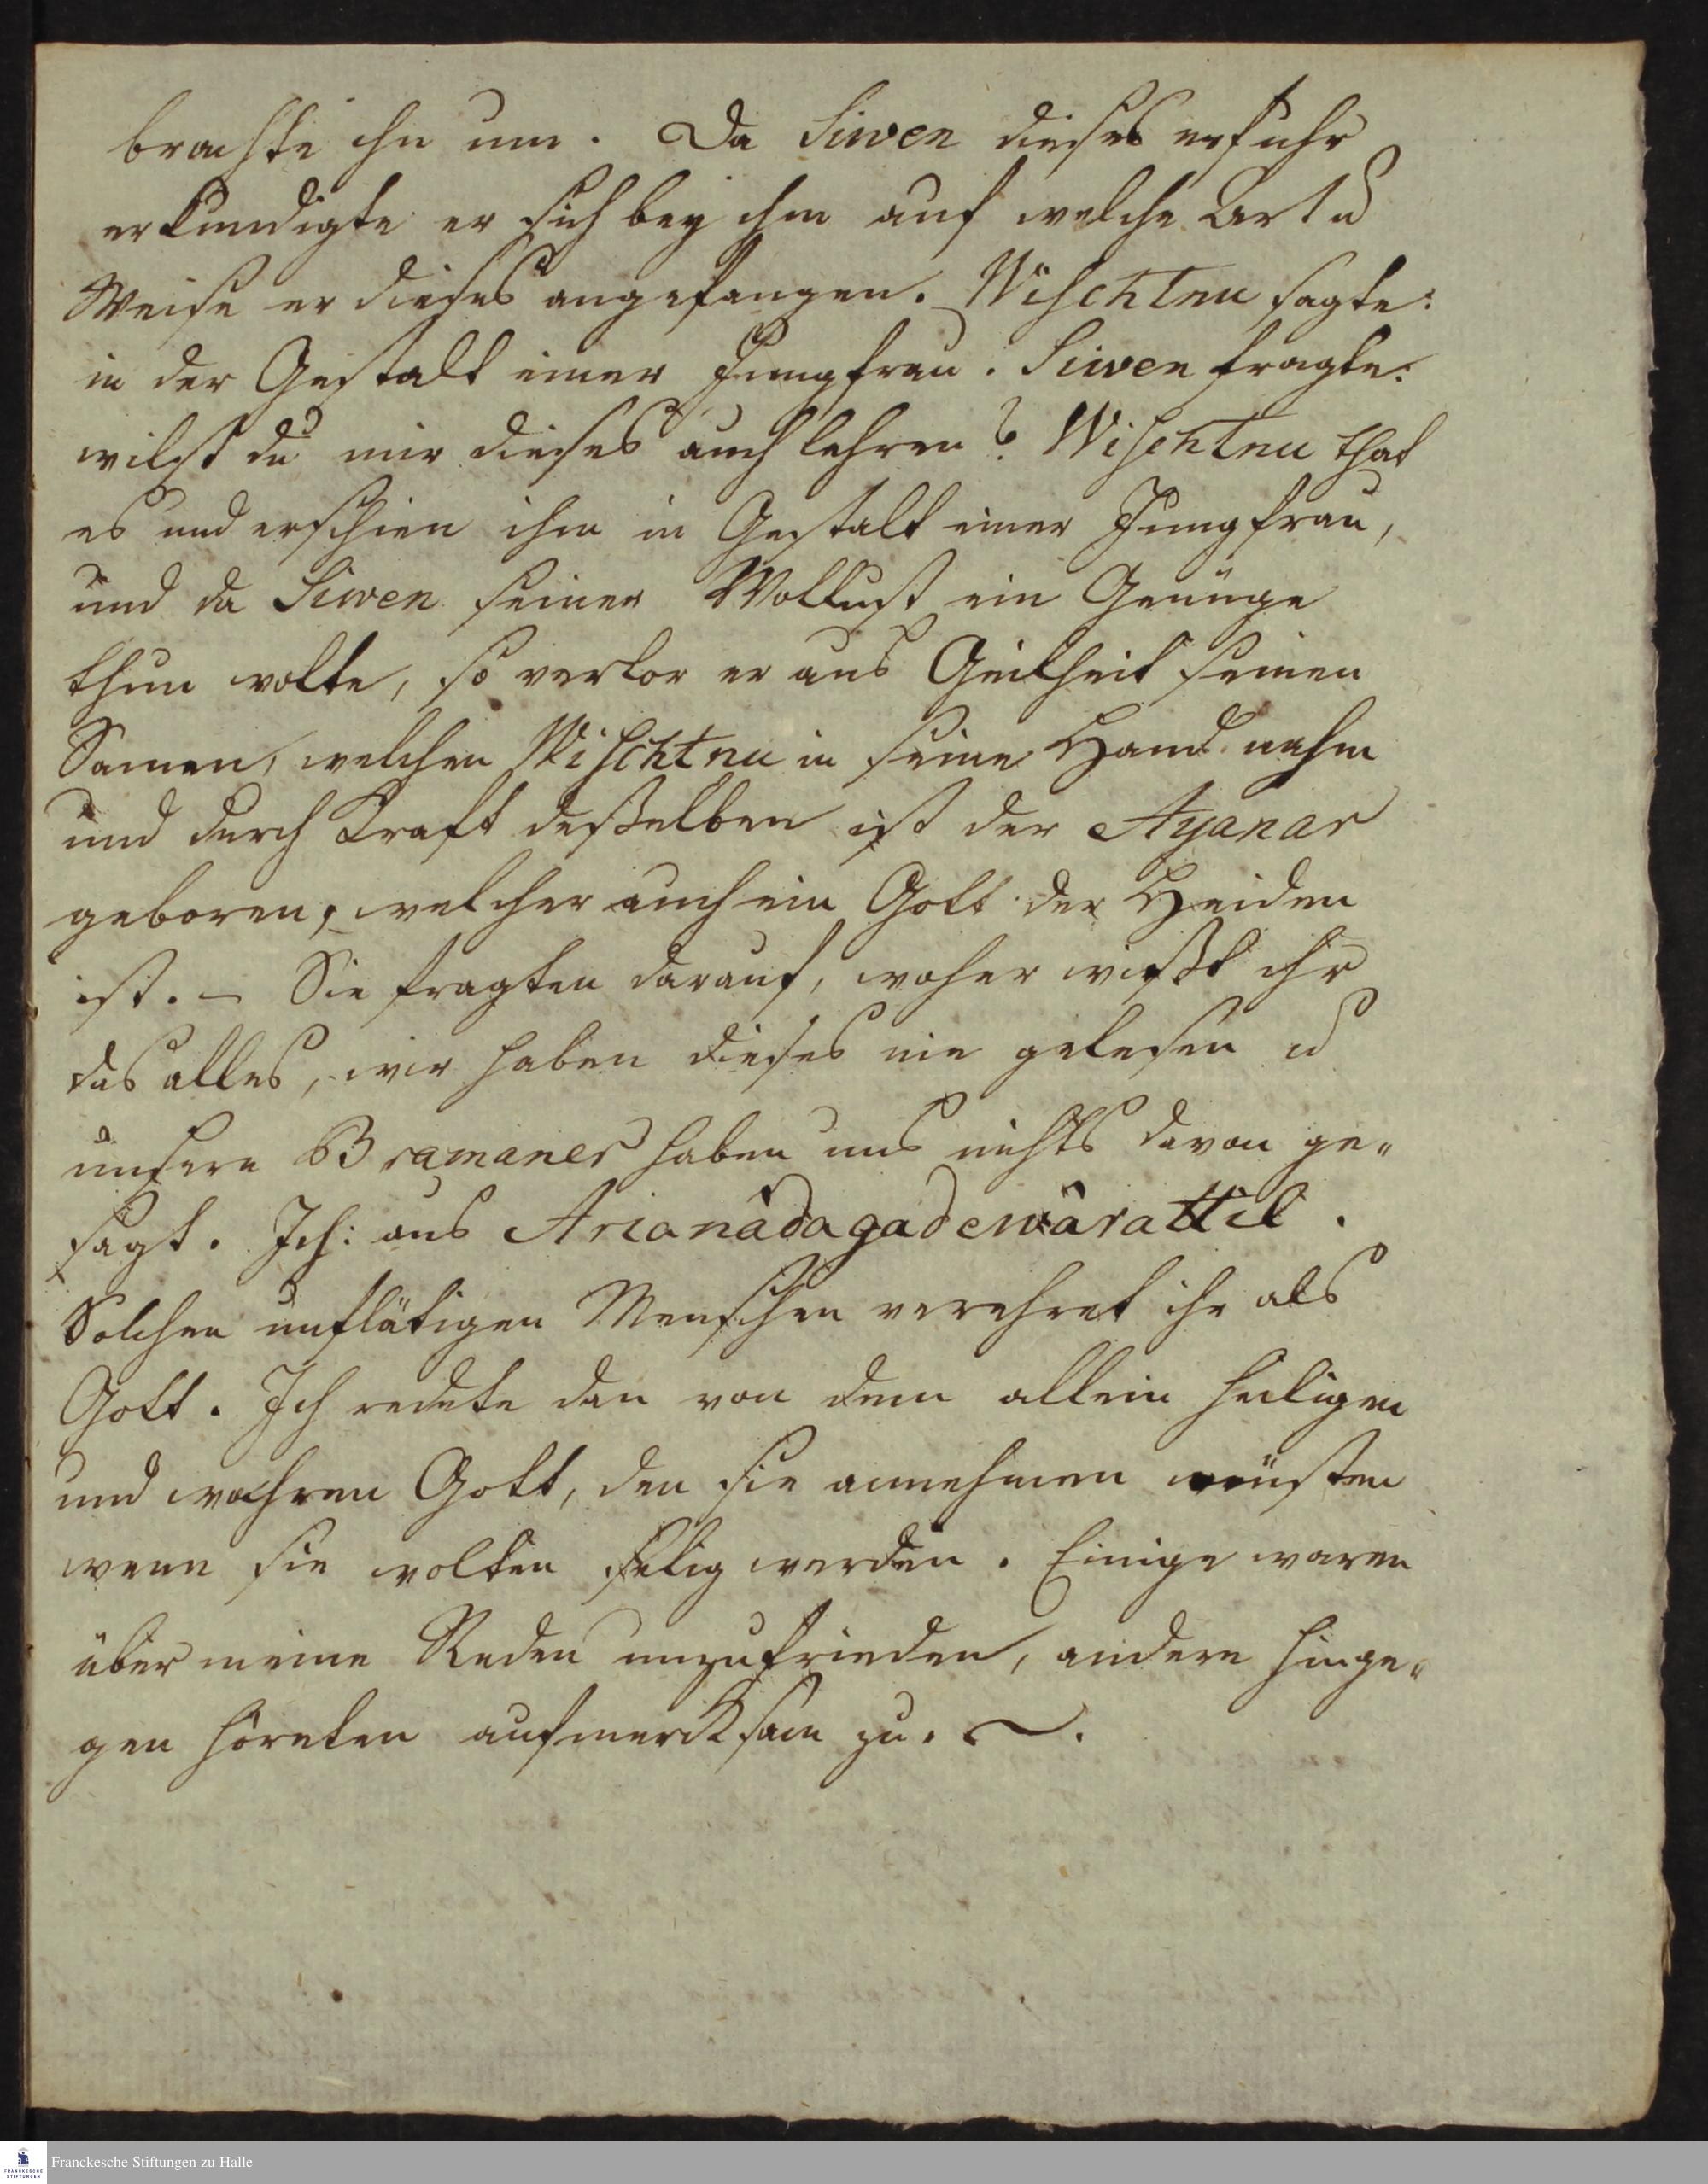 brachte ihn um. Da Siwen dieses erfuhr
erkundigte er sich bey ihm auf welche Art u
Weise er dieses angefangen. Wischtnu sagte:
in der Gestalt einer Jungfrau. Siwen fragte:
wilst du mir dieses auch lehren? Wischtnu that
es und erschien ihm in Gestalt einer Jungfrau,
und da Siwen seiner Wollust ein Genüge
thun wolte, so verlor er aus Geilheit seinen
Samen, welchen Wischtnu in seine Hand nahm
und durch Kraft deßelben ist der Ayanar
geboren, welcher auch ein Gott der Heiden
ist. – Sie fragten darauf, woher wißt ihr
das alles, wir haben dieses nie gelesen u
unsere Bramaner haben uns nichts davon ge„
sagt. Ich: aus Arianâdagadewârattil.
Solchen unflätigen Menschen verehret ihr als
Gott. Ich redete dan von dem allein heiligen
und wahren Gott, den sie annehmen müsten
wenn sie wolten selig werden. Einige waren
über meine Reden unzufrieden, andere hinge„
gen höreten aufmercksam zu. ~.
Franckesche Stiftungen zu Halle